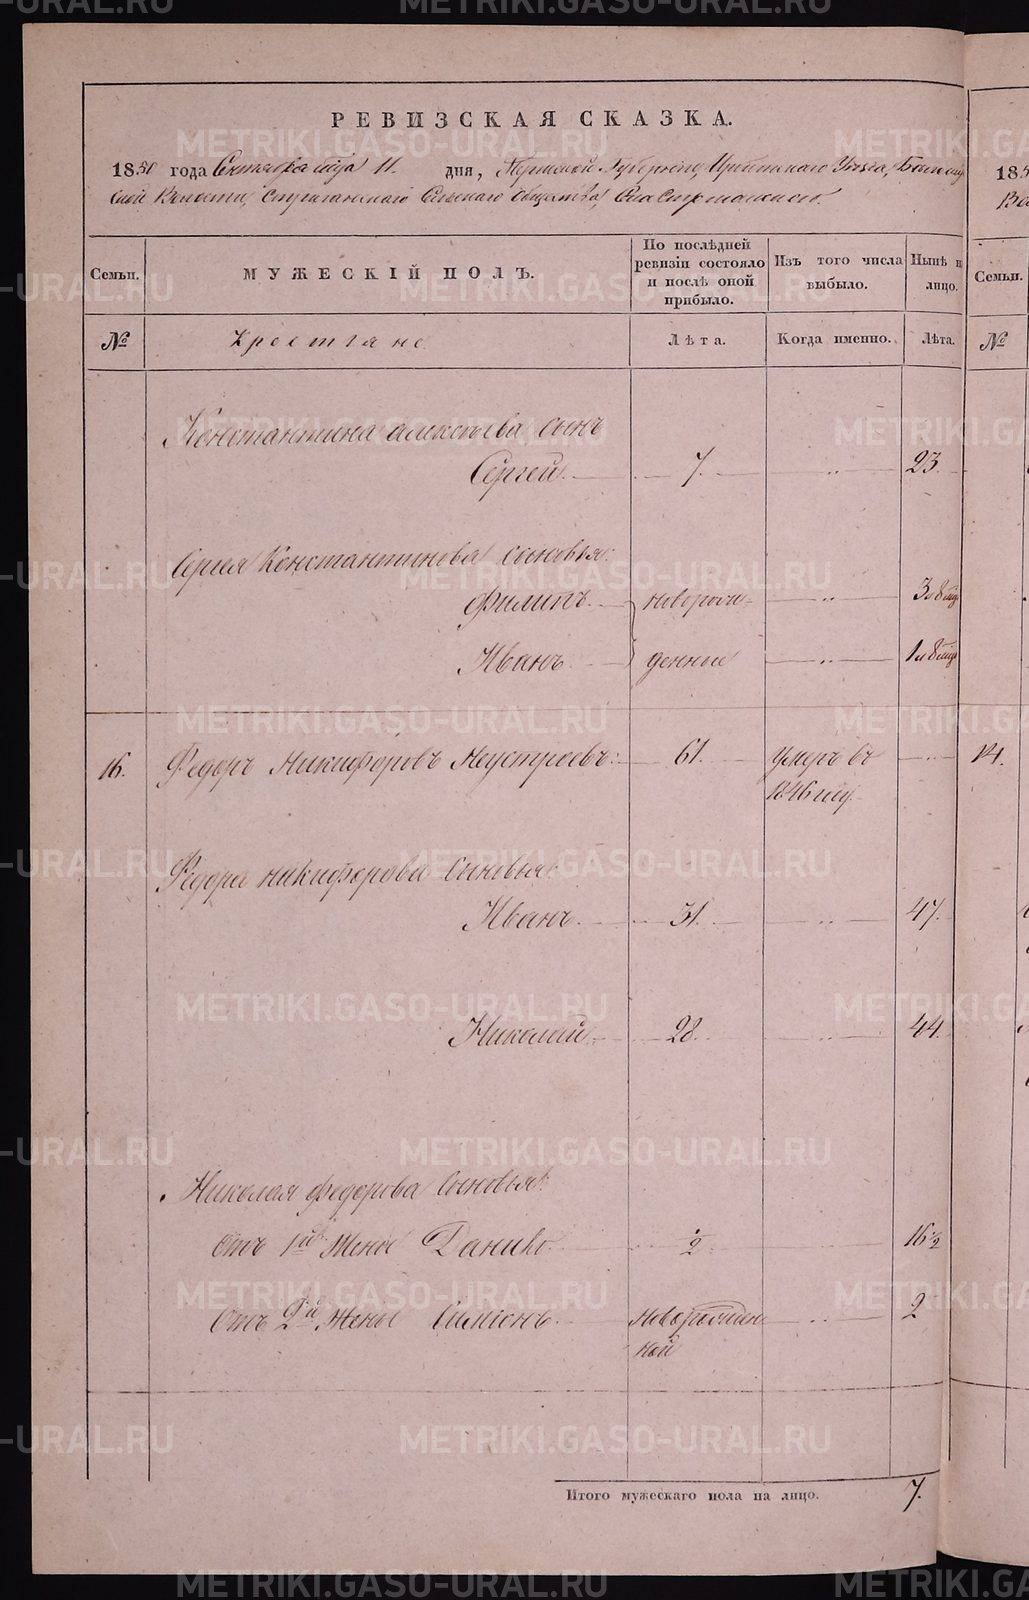 РЕВИЗСКАЯ СКАЗКА.
1850 года Сентября м-ца 11. дня, Пермской Губернии, Ирбитскаго Уезда,
ской Волости, Сельскаго Общества,
Семьи.
МУЖЕСКІЙ ПОЛЪ.
По послѣдней ревизіи состояло и послѣ оной прибыло.
Изъ того числа выбыло.
Нынѣ на лицо.
Семьи.
№
Крестьяне
Лѣта.
Когда именно.
Лѣта.
№
Константина Алексѣева сынъ
Сергей 7. „ 23.
Сергея Константинова сыновья:
Филипъ новорож- „ 3 и 8 мцъ
Иванъ денные „ 1 и 8 мцъ
16. Федоръ Никифоровъ Неустроевъ 61. умеръ въ „ 14.
1846 году
Федора Никифорова сыновья:
Иванъ 31. „ 47.
Николай 28. „ 44.
Николая Федорова сыновья:
отъ 1й жены Данило ½ 16½
отъ 2й жены Симіонъ новорожден „ 2
ной
Итого мужескаго пола на лицо. 7.
METRIKI.GASO-URAL.RU